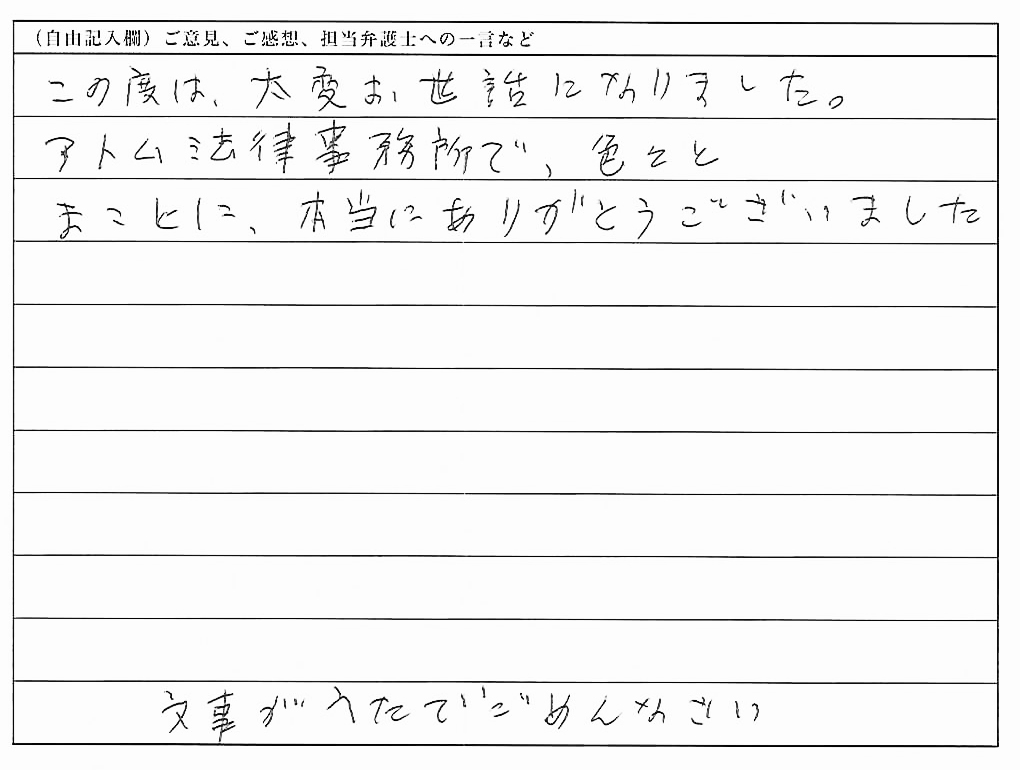 （自由記入欄）ご意見、ご感想、担当弁護士への一言など
この度は、大変お世話になりました。
アトム法律事務所で、色々と
まことに、本当にありがとうございました
文事がうたでごめんなさい